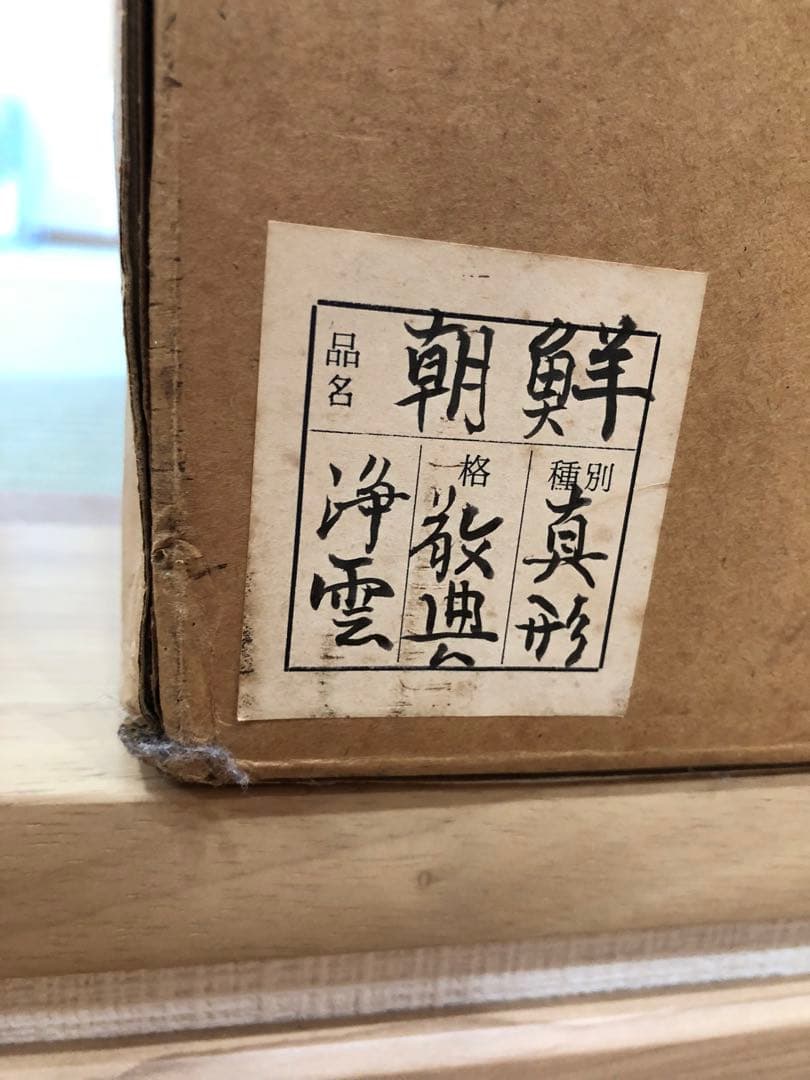 品名 朝鮮
格 種別
浄雲 敬典 真形